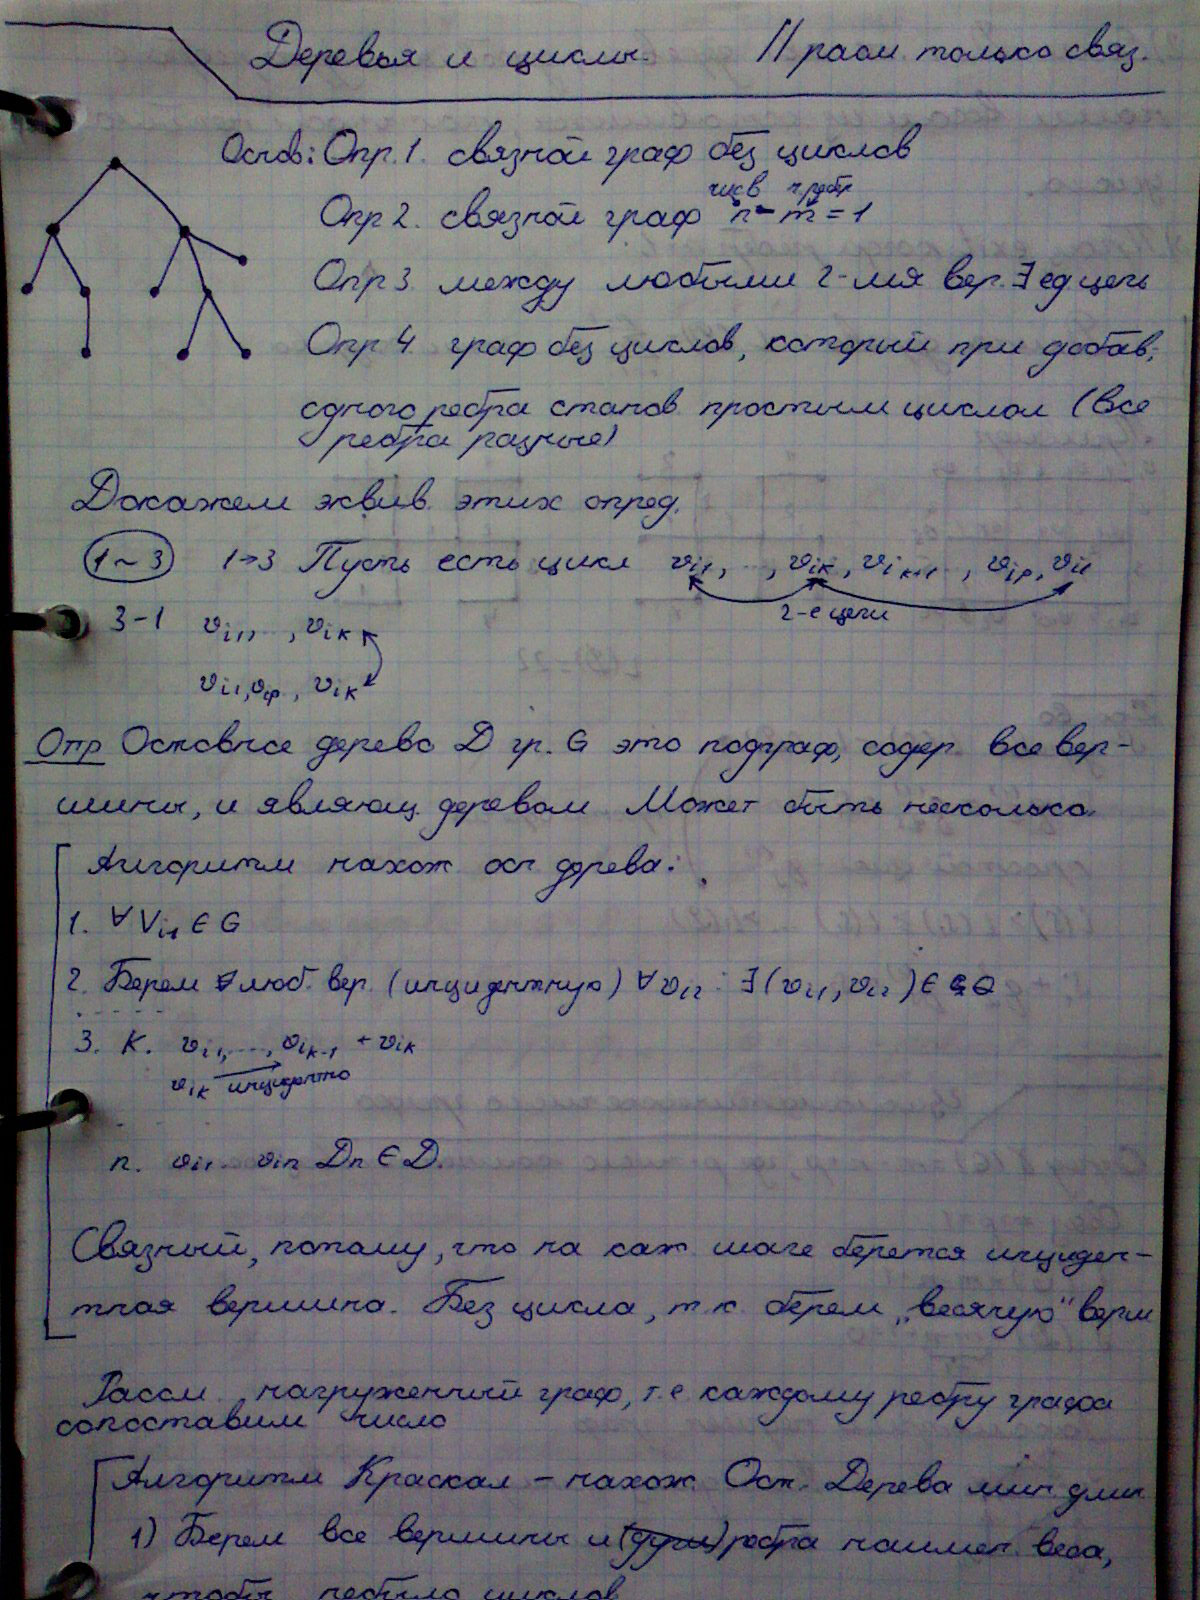 Деревья и циклы. // расм. только связ.
Основ: Опр. 1. связной граф без циклов
чис в ч ребр
Опр 2. связной граф n - m = 1
Опр 3. между любыми 2-мя вер. ∃ ед цепь
Опр 4. граф без циклов, который при добав.
одного ребра станов. простым циклом (все
ребра разные)
Докажем эквив. этих опред.
1 ~ 3 1→3 Пусть есть цикл v_i1, ..., v_ik, v_ik+1 ..., v_ip, v_i1
2-е цепи
3-1 v_i1, ..., v_ik
v_i1, v_ip, v_ik
Опр Остовное дерево D гр. G это подграф, содер. все вер-
шины, и являющ. деревом Может быть несколько.
Алгоритм нахож ост дерева:
1. ∀ V_i1 ∈ G
2. Берем ∀ люб. вер. (инцидентную) ∀ v_i2 : ∃ (v_i1, v_i2) ∈ G
3. К. v_i1, ..., v_ik-1 + v_ik
v_ik инцидентно
n. v_i1 ... v_in Dn ∈ D.
Связный, потому, что на каж шаге берется инциден-
тная вершина. Без цикла, т.к. берем „висячую“ верш
Рассм. нагруженный граф, т.е каждому ребру графа
сопоставим число
Алгоритм Краскал – нахож. Ост. Дерева мин длин
1) Берем все вершины и (дуги) ребра наимен. веса,
чтобы небыло циклов